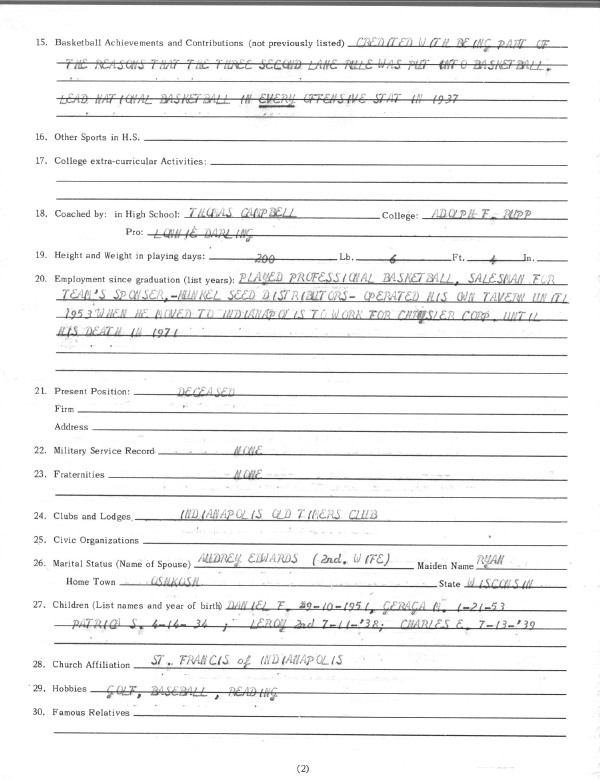 15. Basketball Achievements and Contributions (not previously listed) CREDITED WITH BEING PART OF
THE REASONS THAT THE THREE SECOND LANE RULE WAS PUT INTO BASKETBALL.
LEAD NATIONAL BASKETBALL IN EVERY OFFENSIVE STAT IN 1937
16. Other Sports in H.S.
17. College extra-curricular Activities:
18. Coached by: in High School: THOMAS CAMPBELL College: ADOLPH F. RUPP
Pro: LONNIE DARLING
19. Height and Weight in playing days: 200 Lb. 6 Ft. 4 In.
20. Employment since graduation (list years): PLAYED PROFESSIONAL BASKETBALL, SALESMAN FOR
TEAM'S SPONSER,-MUNKEL SEED DISTRIBUTORS- OPERATED HIS OWN TAVERN UNTIL
1953 WHEN HE MOVED TO INDIANAPOLIS TO WORK FOR CHRYSLER CORP. UNTIL
HIS DEATH IN 1971
21. Present Position: DECEASED
Firm
Address
22. Military Service Record NONE
23. Fraternities NONE
24. Clubs and Lodges INDIANAPOLIS OLD TIMERS CLUB
25. Civic Organizations
26. Marital Status (Name of Spouse) AUDREY EDWARDS (2nd. WIFE) Maiden Name RYAN
Home Town OSHKOSH State WISCONSIN
27. Children (List names and year of birth) DANIEL F. 9-10-1951, N. 1-21-53
S. 4-14-34 ; LEROY 2nd 7-11-'38; CHARLES E. 7-13-'39
28. Church Affiliation ST. FRANCIS of INDIANAPOLIS
29. Hobbies GOLF, BASEBALL, READING
30. Famous Relatives
(2)